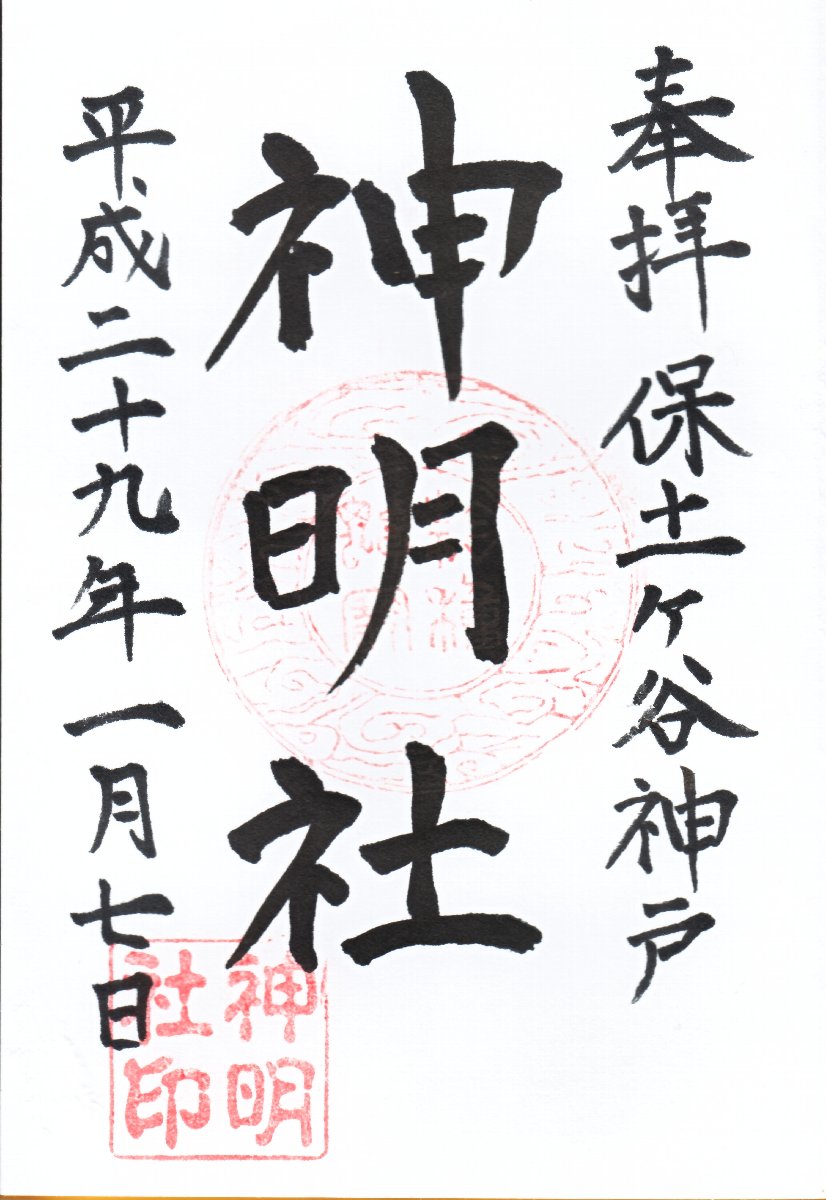 奉拝 保土ヶ谷神戸
神明社
平成二十九年一月七日
神明
社印